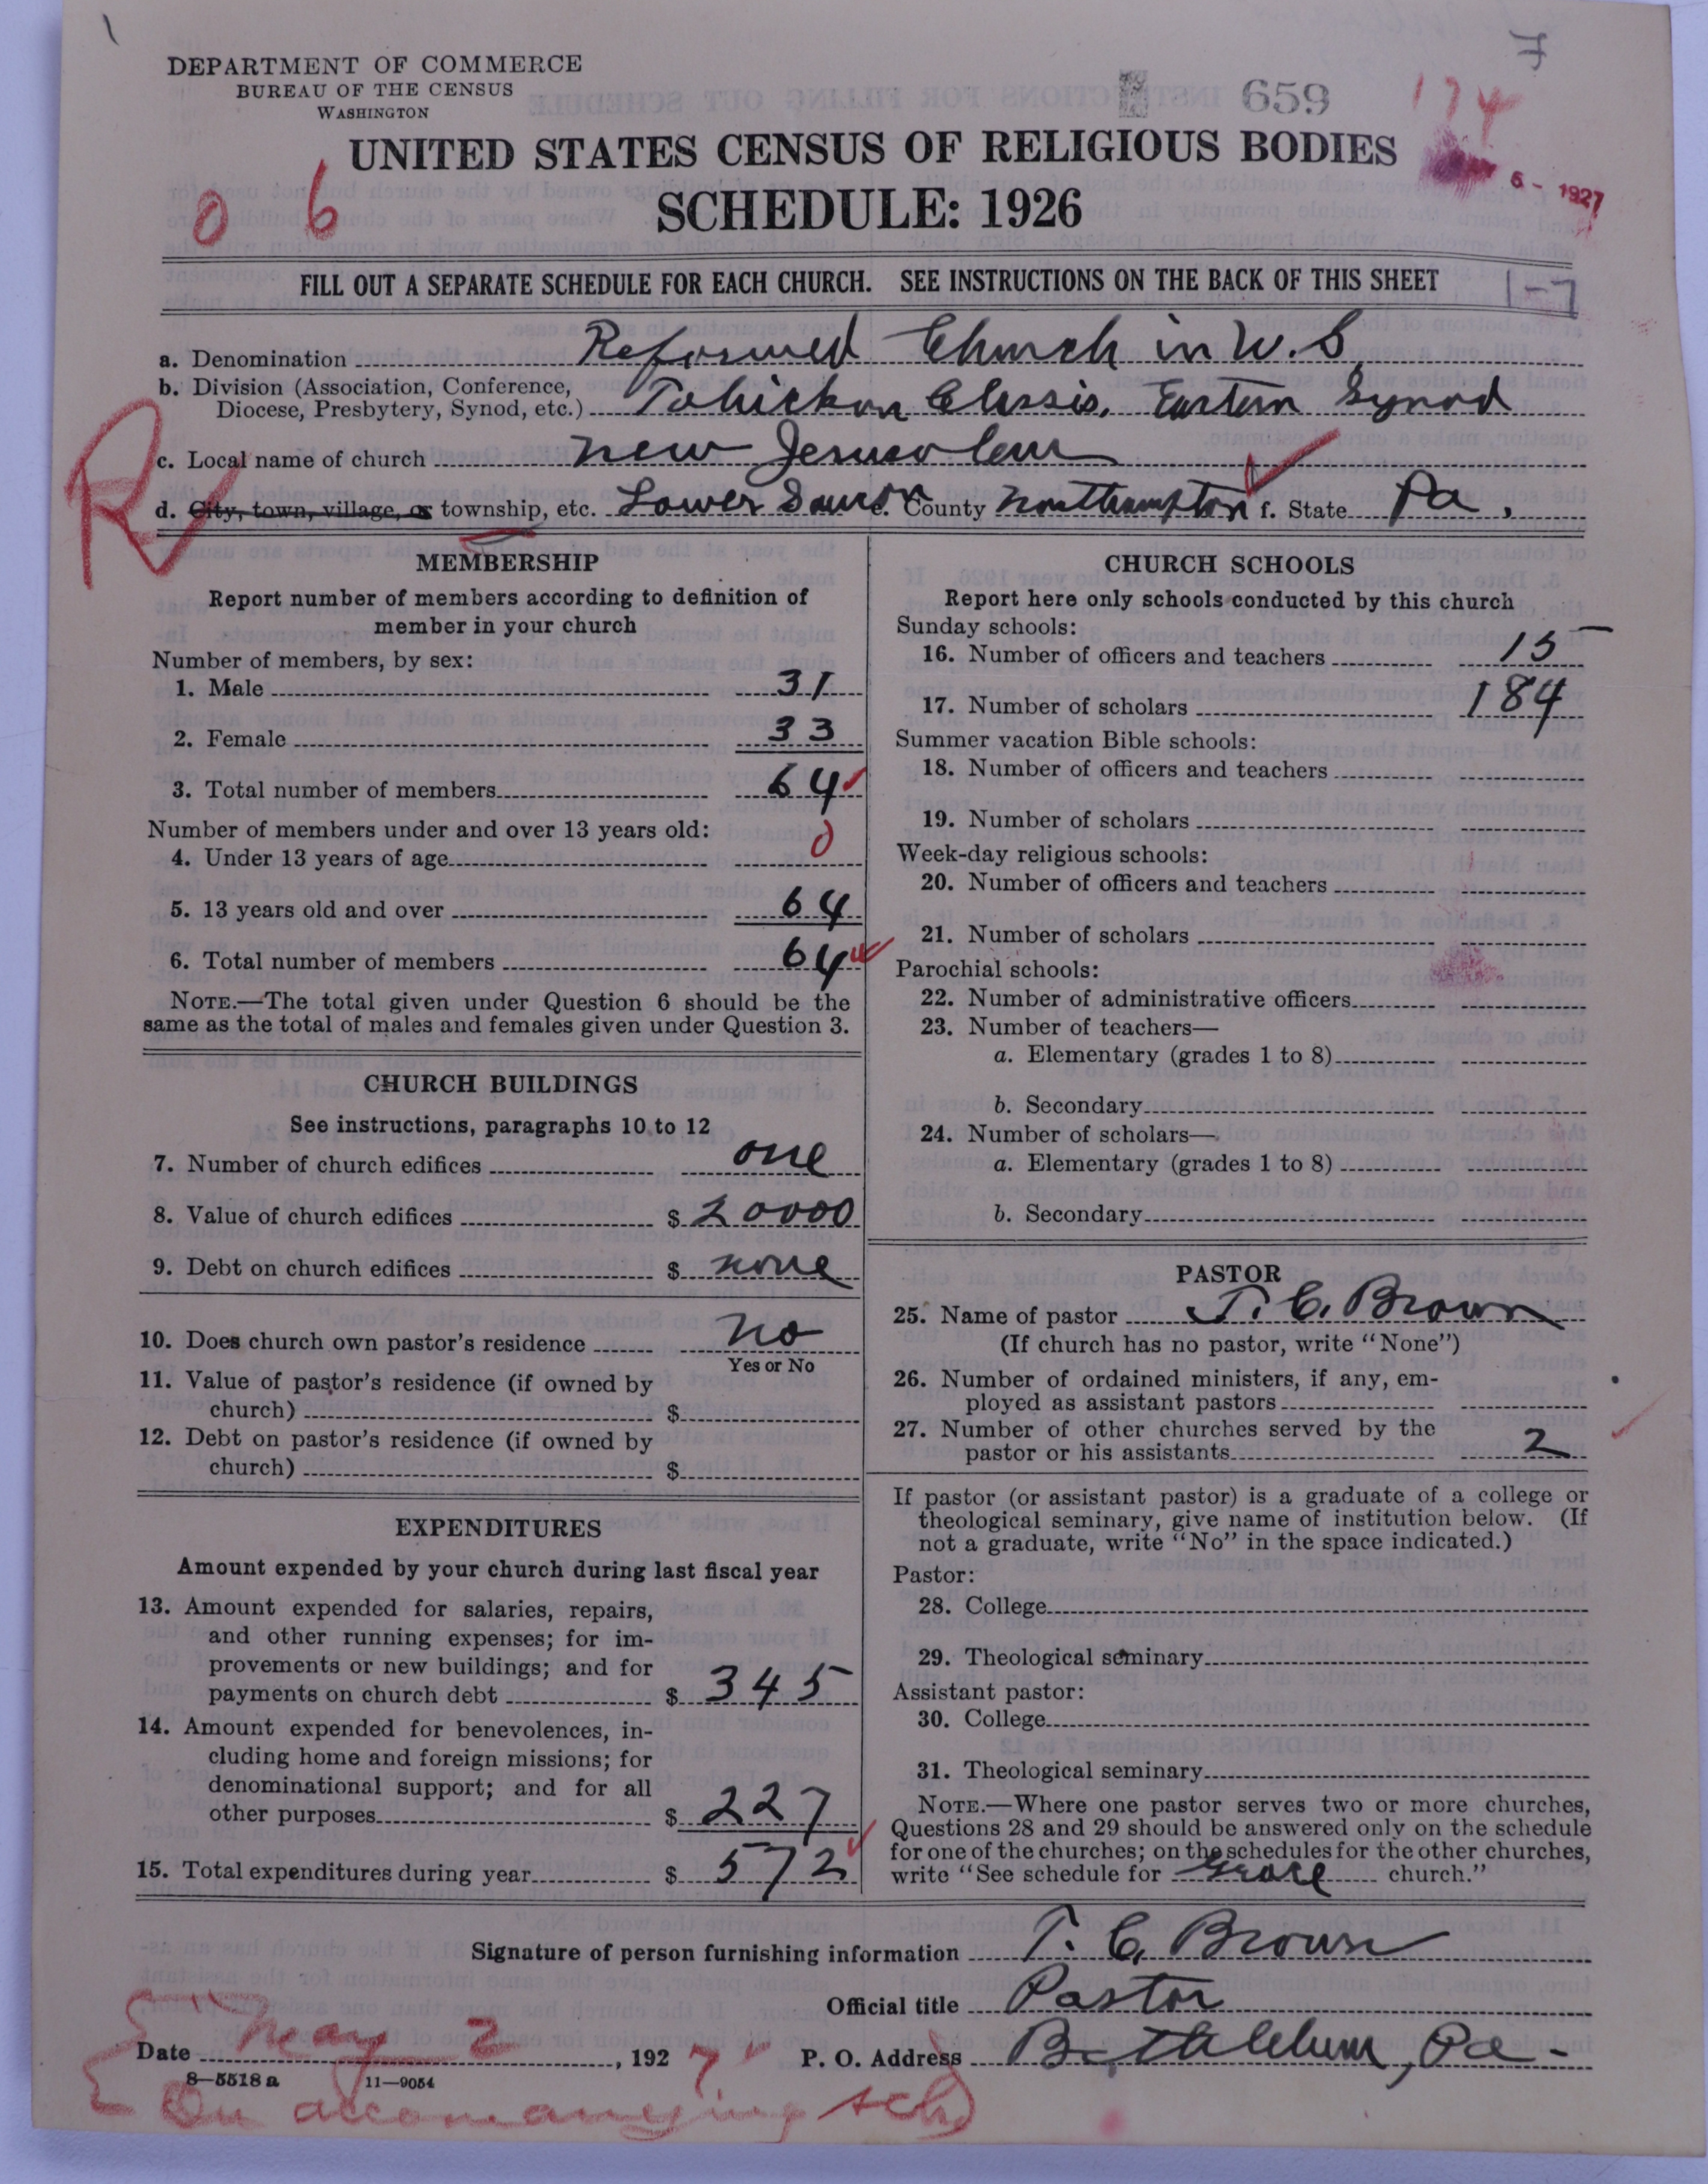 7
DEPARTMENT OF COMMERCE
BUREAU OF THE CENSUS
WASHINGTON
659
174
UNITED STATES CENSUS OF RELIGIOUS BODIES
6 - 1927
0 6
SCHEDULE: 1926
FILL OUT A SEPARATE SCHEDULE FOR EACH CHURCH. SEE INSTRUCTIONS ON THE BACK OF THIS SHEET
1-7
a. Denomination Reformed Church in U.S
b. Division (Association, Conference,
Diocese, Presbytery, Synod, etc.) Tohickon Classis, Eastern Synod
R
c. Local name of church New Jerusalem
d. City, town, village, or township, etc. Lower Saucon e. County Northampton f. State Pa.
MEMBERSHIP
Report number of members according to definition of
member in your church
Number of members, by sex:
1. Male 31
2. Female 33
3. Total number of members 64
Number of members under and over 13 years old:
4. Under 13 years of age 0
5. 13 years old and over 64
6. Total number of members 64
NOTE.—The total given under Question 6 should be the
same as the total of males and females given under Question 3.
CHURCH BUILDINGS
See instructions, paragraphs 10 to 12
7. Number of church edifices one
8. Value of church edifices $ 20000
9. Debt on church edifices $ none
10. Does church own pastor's residence No
Yes or No
11. Value of pastor's residence (if owned by
church) $
12. Debt on pastor's residence (if owned by
church) $
EXPENDITURES
Amount expended by your church during last fiscal year
13. Amount expended for salaries, repairs,
and other running expenses; for im-
provements or new buildings; and for
payments on church debt $ 345
14. Amount expended for benevolences, in-
cluding home and foreign missions; for
denominational support; and for all
other purposes $ 227
15. Total expenditures during year $ 572
CHURCH SCHOOLS
Report here only schools conducted by this church
Sunday schools:
16. Number of officers and teachers 15
17. Number of scholars 184
Summer vacation Bible schools:
18. Number of officers and teachers
19. Number of scholars
Week-day religious schools:
20. Number of officers and teachers
21. Number of scholars
Parochial schools:
22. Number of administrative officers
23. Number of teachers—
a. Elementary (grades 1 to 8)
b. Secondary
24. Number of scholars—
a. Elementary (grades 1 to 8)
b. Secondary
PASTOR
25. Name of pastor T. C. Brown
(If church has no pastor, write "None")
26. Number of ordained ministers, if any, em-
ployed as assistant pastors
27. Number of other churches served by the
pastor or his assistants 2
If pastor (or assistant pastor) is a graduate of a college or
theological seminary, give name of institution below. (If
not a graduate, write "No" in the space indicated.)
Pastor:
28. College
29. Theological seminary
Assistant pastor:
30. College
31. Theological seminary
NOTE.—Where one pastor serves two or more churches,
Questions 28 and 29 should be answered only on the schedule
for one of the churches; on the schedules for the other churches,
write "See schedule for Grace church."
Signature of person furnishing information T. C. Brown
Official title Pastor
Date May 2, 1927
P. O. Address Bethlehem, Pa
8—5518 a 11—9054
On accomanying sch